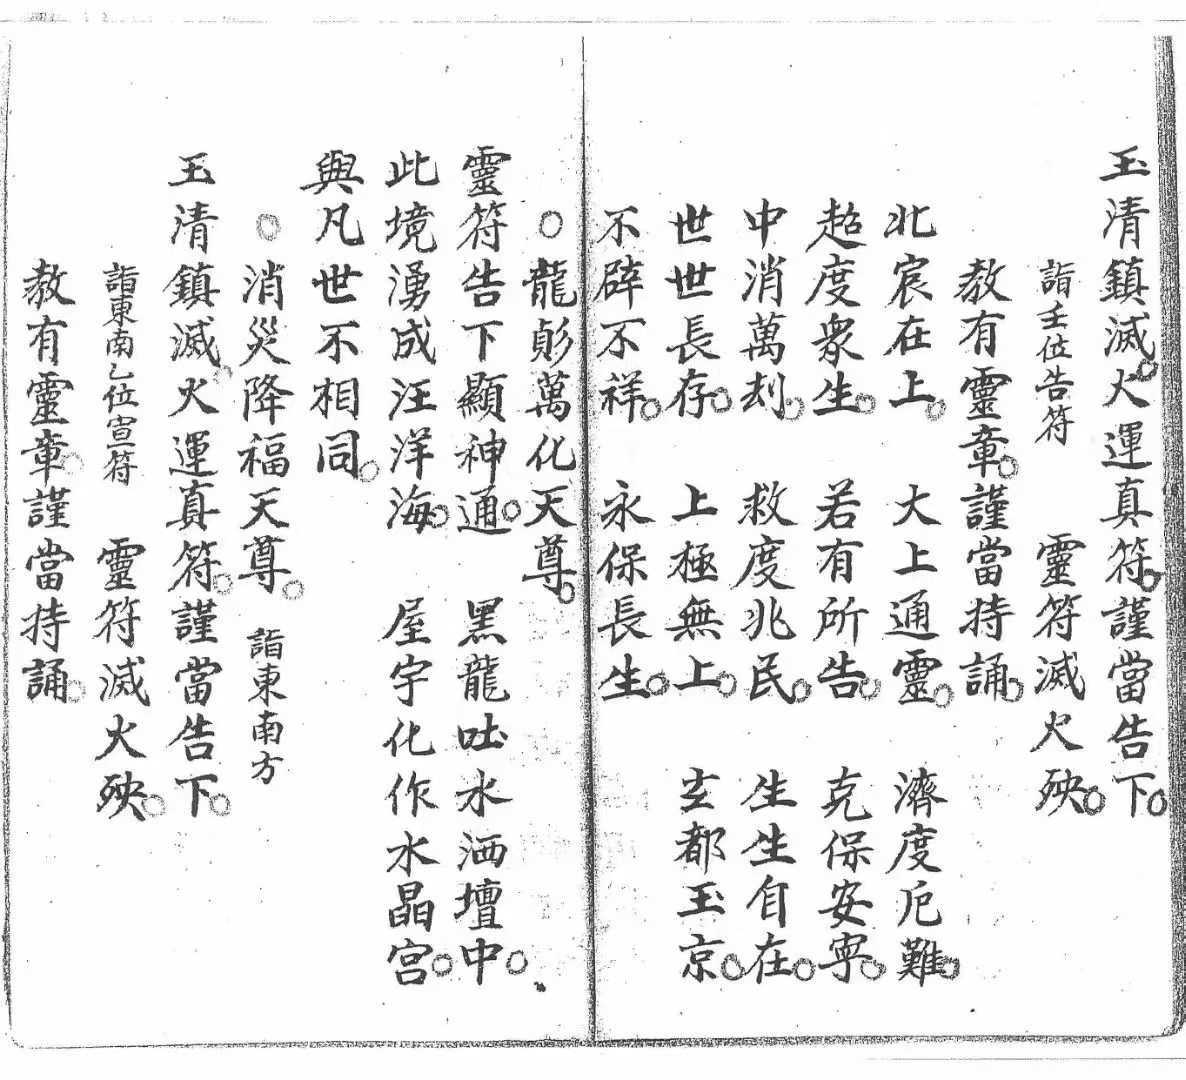 玉清鎮滅火運真符謹當告下
詣壬位告符 靈符滅火殃
教有靈章謹當持誦
北宸在上 大上通靈 濟度厄難
超度衆生 若有所告 克保安寧
中消萬刦 救度兆民 生生自在
世世長存 上極無上 玄都玉京
不辟不祥 永保長生
○龍彰萬化天尊
靈符告下顯神通 黑龍吐水洒壇中
此境湧成汪洋海 屋宇化作水晶宮
與凡世不相同
○消災降福天尊 詣東南方
玉清鎮滅火運真符謹當告下
詣東南乙位宣符 靈符滅火殃
教有靈章謹當持誦